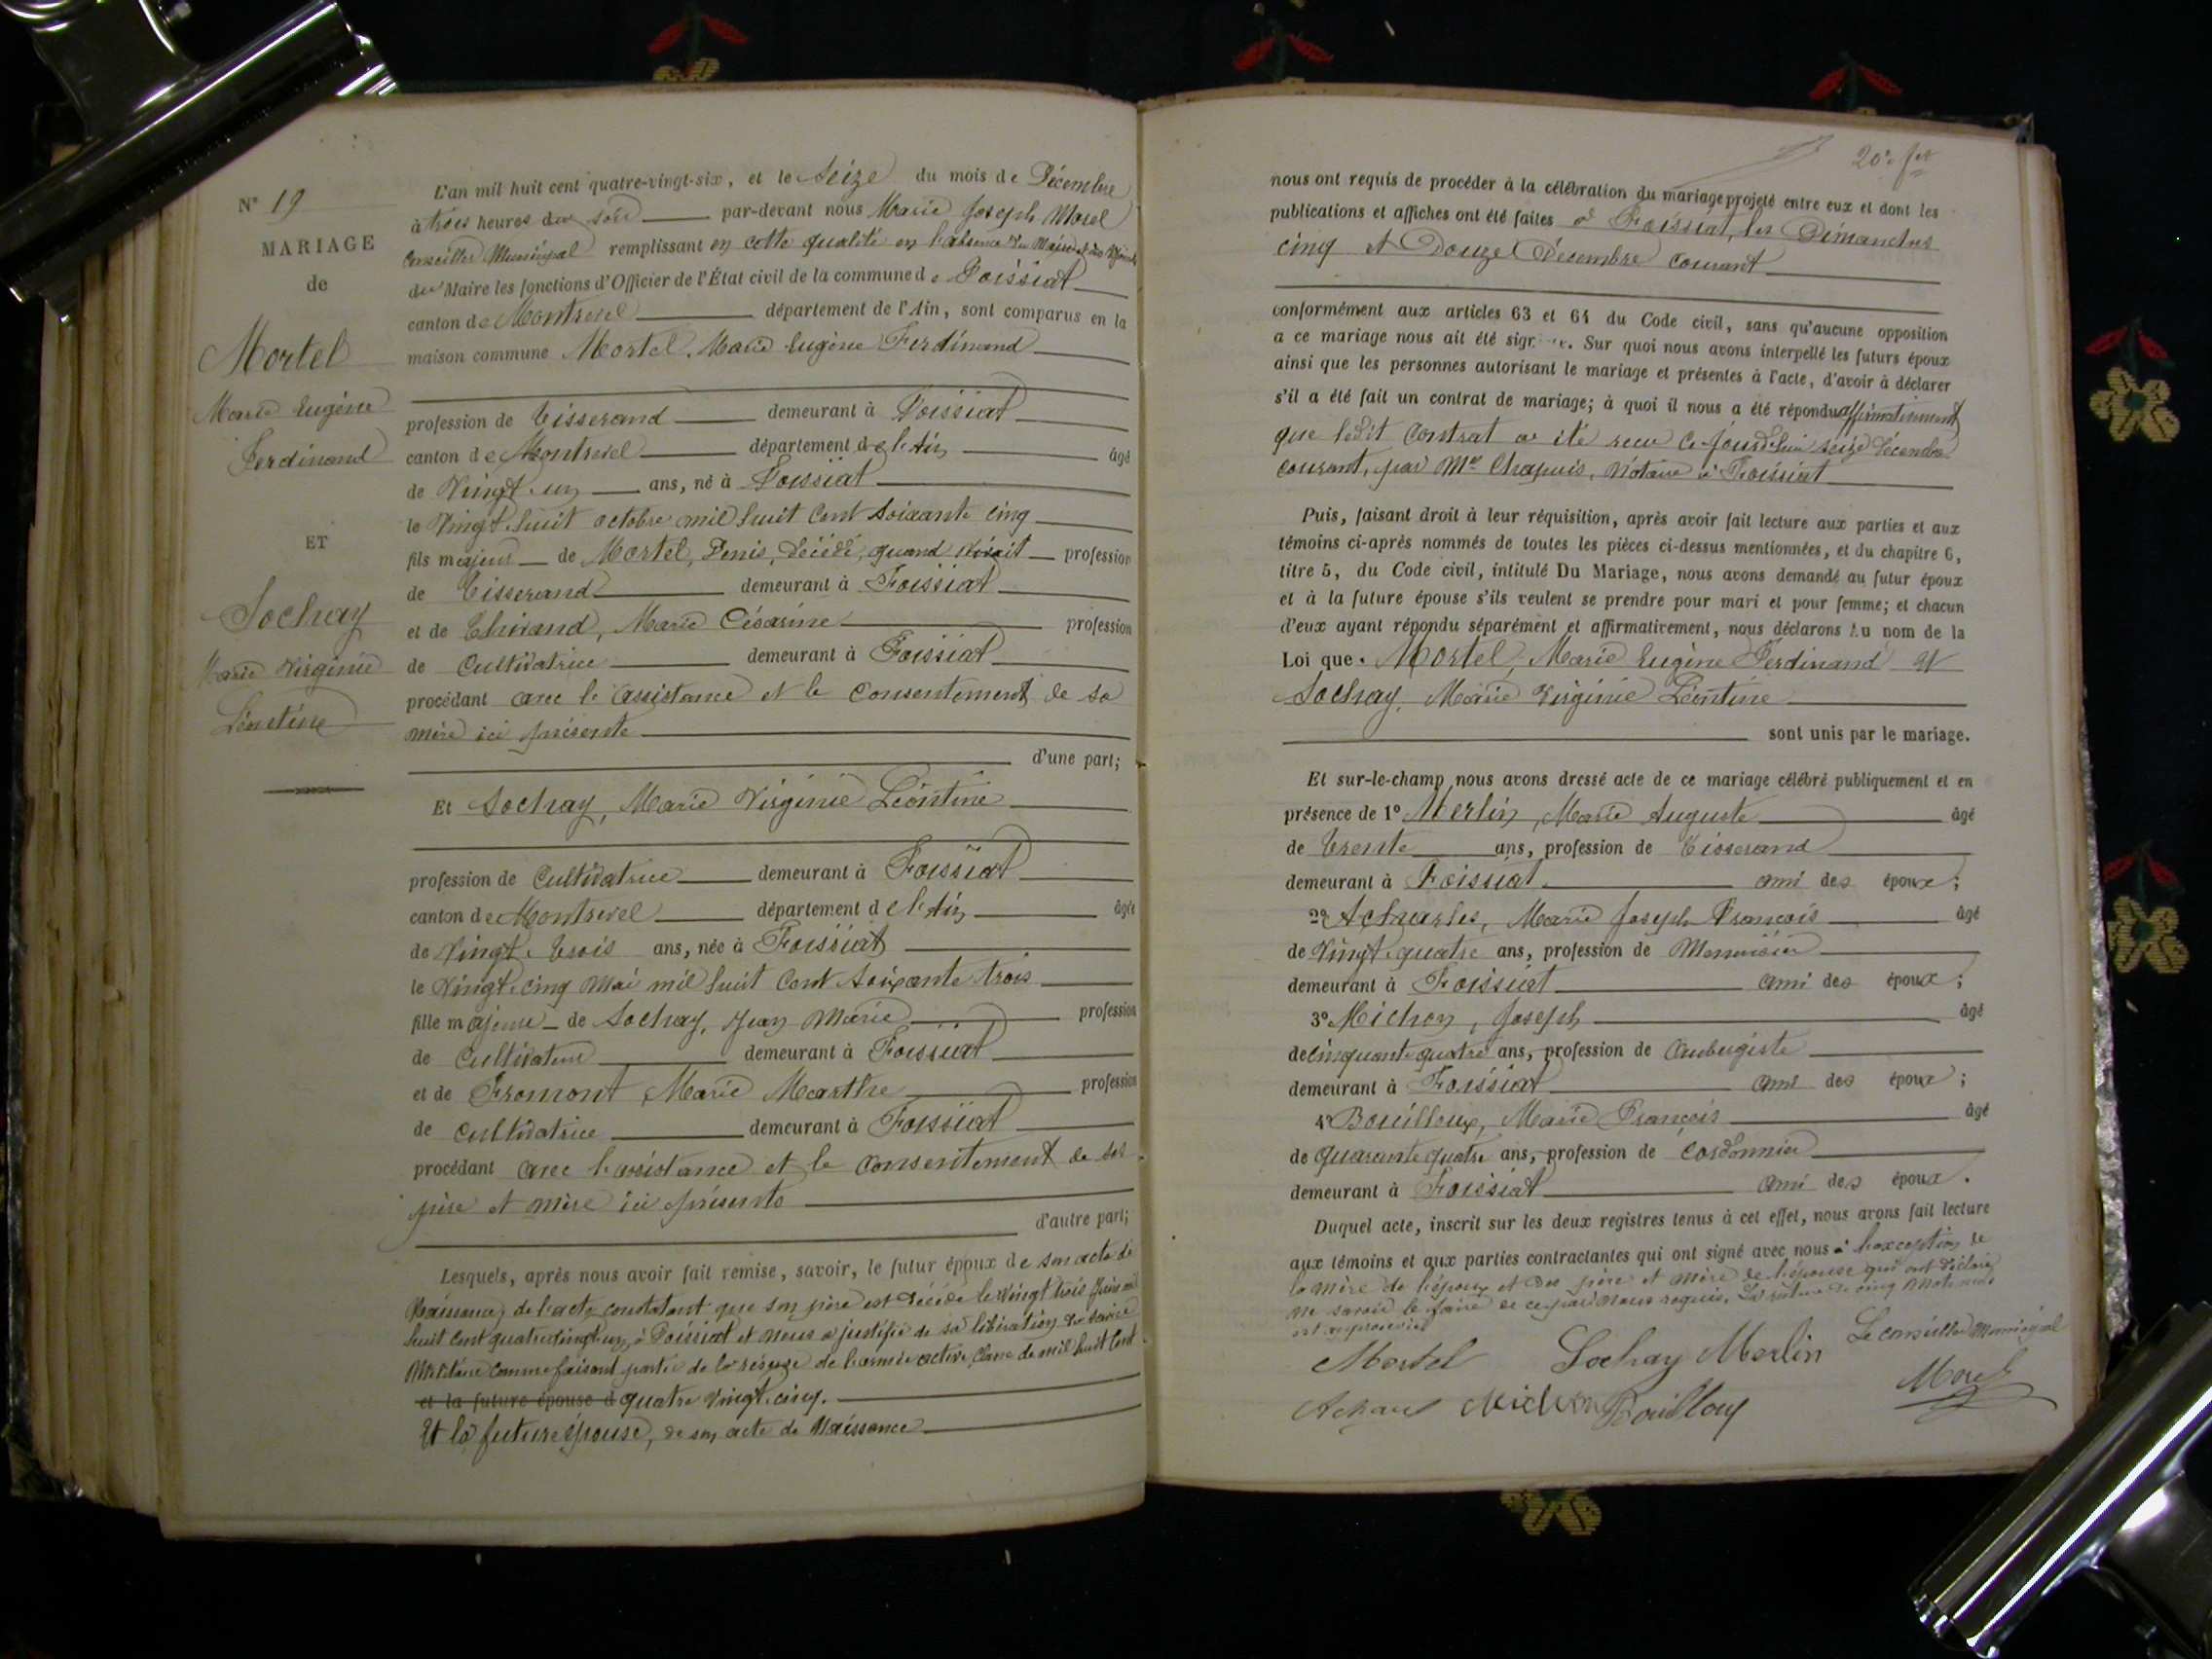 N° 19
MARIAGE
de
Mortel
Marie Eugène
Ferdinand
ET
Sochay
Marie Virginie
Léontine
L'an mil huit cent quatre-vingt-six, et le Seize du mois de Décembre
à trois heures du soir par-devant nous Marie Joseph Morel
Conseiller Municipal remplissant en cette qualité en l'absence du Maire et des Adjoints
du Maire les fonctions d'Officier de l'État civil de la commune de Foissiat
canton de Montrevel département de l'Ain, sont comparus en la
maison commune Mortel, Marie Eugène Ferdinand
profession de Tisserand demeurant à Foissiat
canton de Montrevel département de l'Ain âgé
de Vingt un ans, né à Foissiat
le Vingt huit octobre mil huit cent soixante cinq
fils majeur de Mortel, Denis, décédé, quand vivait profession
de Tisserand demeurant à Foissiat
et de Thivand, Marie Césarine profession
de Cultivatrice demeurant à Foissiat
procédant avec l'assistance et le consentement de sa
mère ici présente
d'une part;
Et Sochay, Marie Virginie Léontine
profession de Cultivatrice demeurant à Foissiat
canton de Montrevel département de l'Ain âgée
de Vingt trois ans, née à Foissiat
le Vingt cinq Mai mil huit cent soixante trois
fille majeure de Sochay, Jean Marie profession
de Cultivateur demeurant à Foissiat
et de Fromont, Marie Marthe profession
de cultivatrice demeurant à Foissiat
procédant avec l'assistance et le consentement de ses
père et mère ici présents
d'autre part;
Lesquels, après nous avoir fait remise, savoir, le futur époux de son acte de
Naissance, de l'acte constatant que son père est décédé le Vingt trois Juin mil
huit cent quatre vingt un, à Foissiat et nous a justifié de sa libération du service
Militaire comme faisant partie de la réserve de l'armée active, classe de mil huit cent
et la future épouse d quatre Vingt cinq.
Et la future épouse, de son acte de Naissance
20e fet
nous ont requis de procéder à la célébration du mariage projeté entre eux et dont les
publications et affiches ont été faites à Foissiat, les Dimanches
cinq et Douze Décembre courant
conformément aux articles 63 et 64 du Code civil, sans qu'aucune opposition
a ce mariage nous ait été sign. Sur quoi nous avons interpellé les futurs époux
ainsi que les personnes autorisant le mariage et présentes à l'acte, d'avoir à déclarer
s'il a été fait un contrat de mariage; à quoi il nous a été répondu affirmativement
que ledit contrat a été reçu ce jourd'hui seize décembre
courant, par Me Chapuis, Notaire à Foissiat
Puis, faisant droit à leur réquisition, après avoir fait lecture aux parties et aux
témoins ci-après nommés de toutes les pièces ci-dessus mentionnées, et du chapitre 6,
titre 5, du Code civil, intitulé Du Mariage, nous avons demandé au futur époux
et à la future épouse s'ils veulent se prendre pour mari et pour femme; et chacun
d'eux ayant répondu séparément et affirmativement, nous déclarons au nom de la
Loi que Mortel, Marie Eugène Ferdinand et
Sochay, Marie Virginie Léontine
sont unis par le mariage.
Et sur-le-champ nous avons dressé acte de ce mariage célébré publiquement et en
présence de 1° Merlin, Marie Auguste âgé
de Trente ans, profession de Tisserand
demeurant à Foissiat ami des époux;
2° Acharles, Marie Joseph François âgé
de Vingt quatre ans, profession de Menuisier
demeurant à Foissiat ami des époux;
3° Michon, Joseph âgé
de cinquante quatre ans, profession de Aubergiste
demeurant à Foissiat ami des époux;
4° Bouilloux, Marie François âgé
de quarante quatre ans, profession de Cordonnier
demeurant à Foissiat ami des époux.
Duquel acte, inscrit sur les deux registres tenus à cet effet, nous avons fait lecture
aux témoins et aux parties contractantes qui ont signé avec nous à l'exception de
la mère de l'époux et des père et mère de l'épouse qui ont déclaré
ne savoir le faire de ce par nous requis. La rature de cinq mots nuls
est approuvée
Mortel Sochay Merlin Le conseiller Municipal
Michon Bouilloux Morel